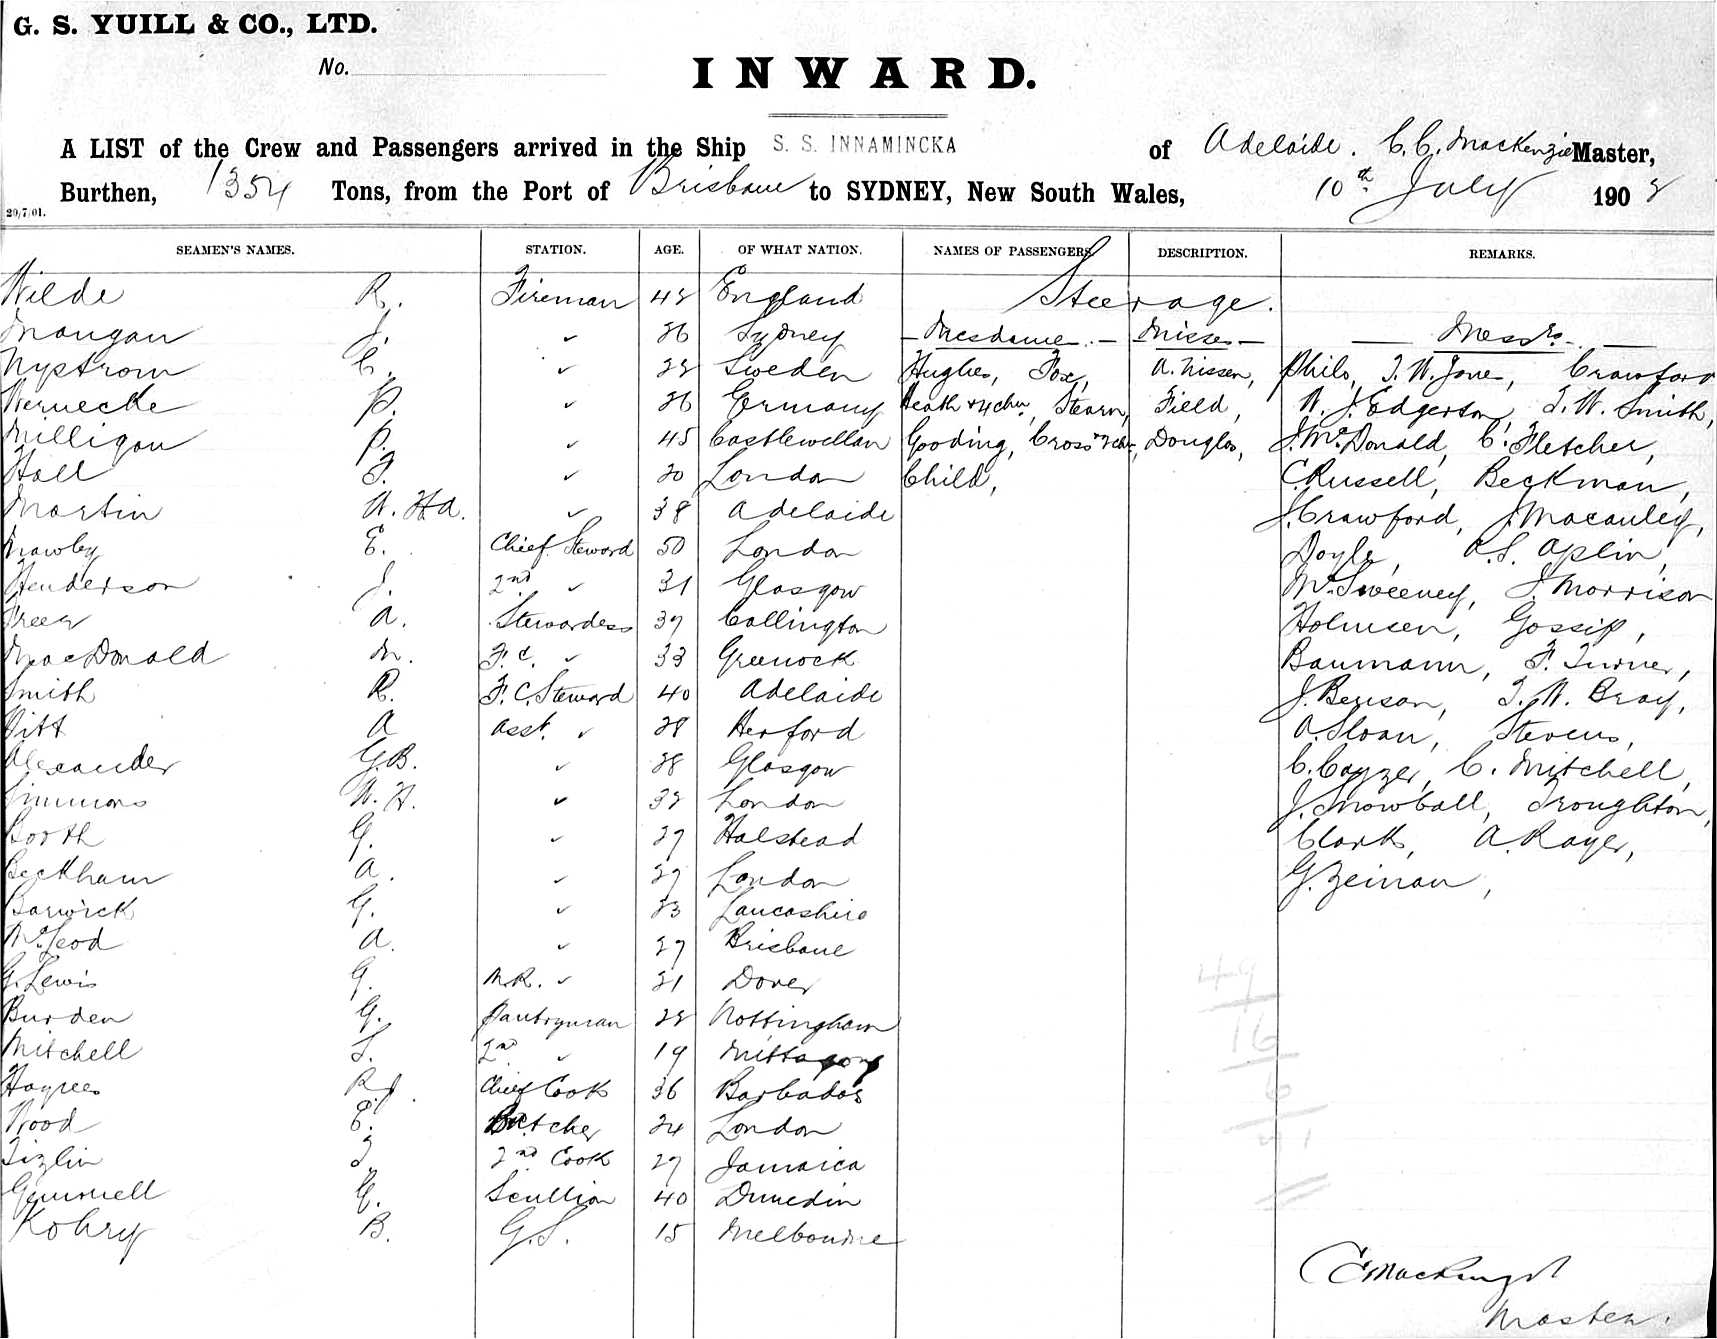 G. S. YUILL & CO., LTD.
No.
INWARD.
A LIST of the Crew and Passengers arrived in the Ship S. S. INNAMINCKA of Adelaide. C. C. MacKenzie Master,
Burthen, 1354 Tons, from the Port of Brisbane to SYDNEY, New South Wales, 10th July 1908
29/7/01.
SEAMEN'S NAMES. STATION. AGE. OF WHAT NATION. NAMES OF PASSENGERS DESCRIPTION. REMARKS.
Wilde R. Fireman 42 England Steerage.
Mangan J. ✓ 26 Sydney — Mesdames — Misses — — Messrs. —
Nystrom C. ✓ 22 Sweden Hughes, Fox, A. Nissen, Phils, T. W. Jones, Crawford
Wernecke P. ✓ 26 Germany Heath & 4 chn, Stearn, Field, W. J. Edgerton, T. W. Smith,
Milligan P. ✓ 45 Castlewellan Gooding, Cross & 2 chn, Douglas, J. McDonald, C. Fletcher,
Hall F. ✓ 20 London Child, C. Russell, Beckman,
Martin W. Hd. ✓ 38 Adelaide J. Crawford, J. Macauley,
Mawby E. Chief Steward 50 London Doyle, A. S. Aplin,
Henderson J. 2nd ✓ 31 Glasgow McSweeney, J. Morrison
Freer A. Stewardess 37 Collington Holmsen, Gossip,
MacDonald M. F. C. ✓ 33 Greenock Baumann, F. Turner,
Smith R. F. C. Steward 40 Adelaide J. Benson, T. W. Bray,
Pitt A Asst. ✓ 28 Herford A. Sloan, Stevens,
Alexander G. B. ✓ 28 Glasgow C. Cayzer, C. Mitchell,
Simmons W. H. ✓ 32 London J. Snowball, Troughton,
Booth G. ✓ 27 Halstead Clark, A. Rayer,
Beckham A. ✓ 27 London G. Zeinan,
Barwick G. ✓ 23 Lancashire
McLeod A. ✓ 27 Brisbane
G. Lewis G. M. R. ✓ 21 Dover
Burden G. Pantryman 22 Nottingham
Mitchell S. 2nd ✓ 19 Mittagong
Haynes R J. Chief Cook 36 Barbados
Wood E. Butcher 24 London
Tizlin J. 2nd Cook 27 Jamaica
Gemmell G. Scullion 40 Dunedin
Kohry B. G. S. 15 Melbourne
49
16
6
71
C C Mackenzie
Master.